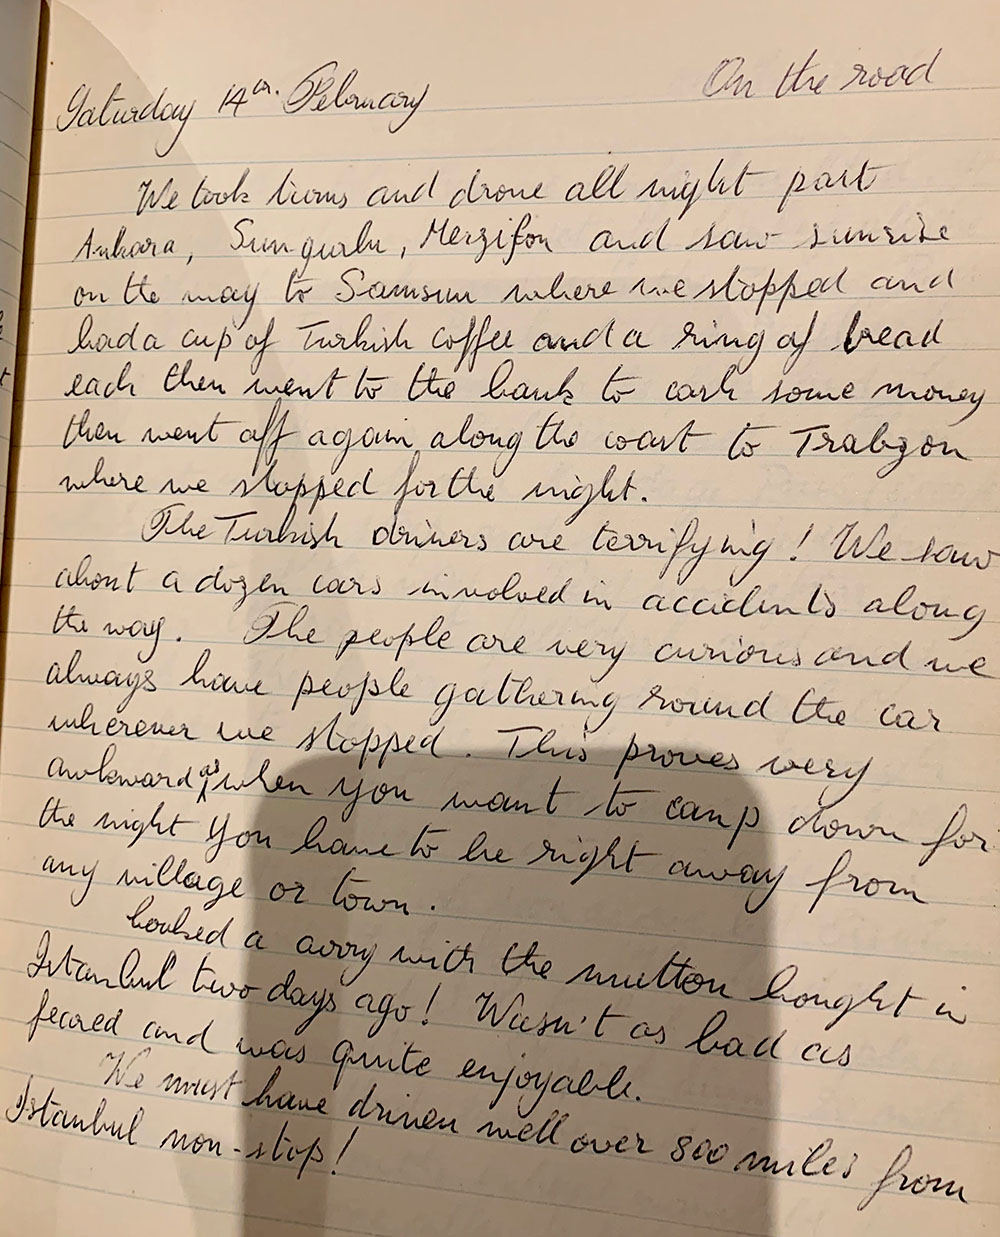 On the road
Saturday 14th. February
We took turns and drove all night past
Ankara, Sungurlu, Merzifon and saw sunrise
on the way to Samsun where we stopped and
had a cup of Turkish coffee and a ring of bread
each then went to the bank to cash some money
then went off again along the coast to Trabzon
where we stopped for the night.
The Turkish drivers are terrifying! We saw
about a dozen cars involved in accidents along
the way. The people are very curious and we
always have people gathering round the car
wherever we stopped. This proves very
awkward as when you want to camp down for
the night you have to be right away from
any village or town.
Cooked a curry with the mutton bought in
Istanbul two days ago! Wasn't as bad as
feared and was quite enjoyable.
We must have driven well over 800 miles from
Istanbul non-stop!